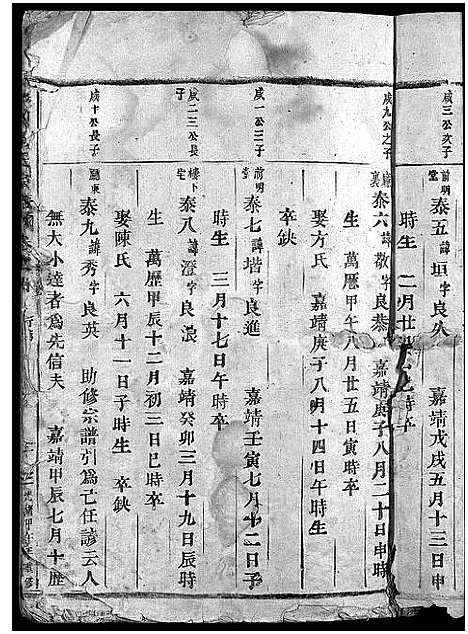 成三公次子
前明堂 泰五 諱垣字良久 嘉靖戊戌五月十三日申
時生 二月廿 時卒
成九公之子
裏 泰六 諱散字良恭 嘉靖庚子八月二十日申時
生 萬曆甲午八月廿五日寅時卒
娶方氏 嘉靖庚子八月十四日午時生
卒缺
成一公三子
前明堂 泰七 諱堦字良進 嘉靖壬寅七月十二日子
時生 三月十七日午時卒
成二三公長子
樓下宅 泰八 諱澄字良浪 嘉靖癸卯三月十九日辰時
生 萬歷甲辰十二月初三日巳時卒
娶陳氏 六月十一日子時生 卒缺
成十公長子
廳東 泰九 諱秀字良英 助修宗譜引為已任諺云人
無大小達者為先信夫 嘉靖甲辰七月十歷